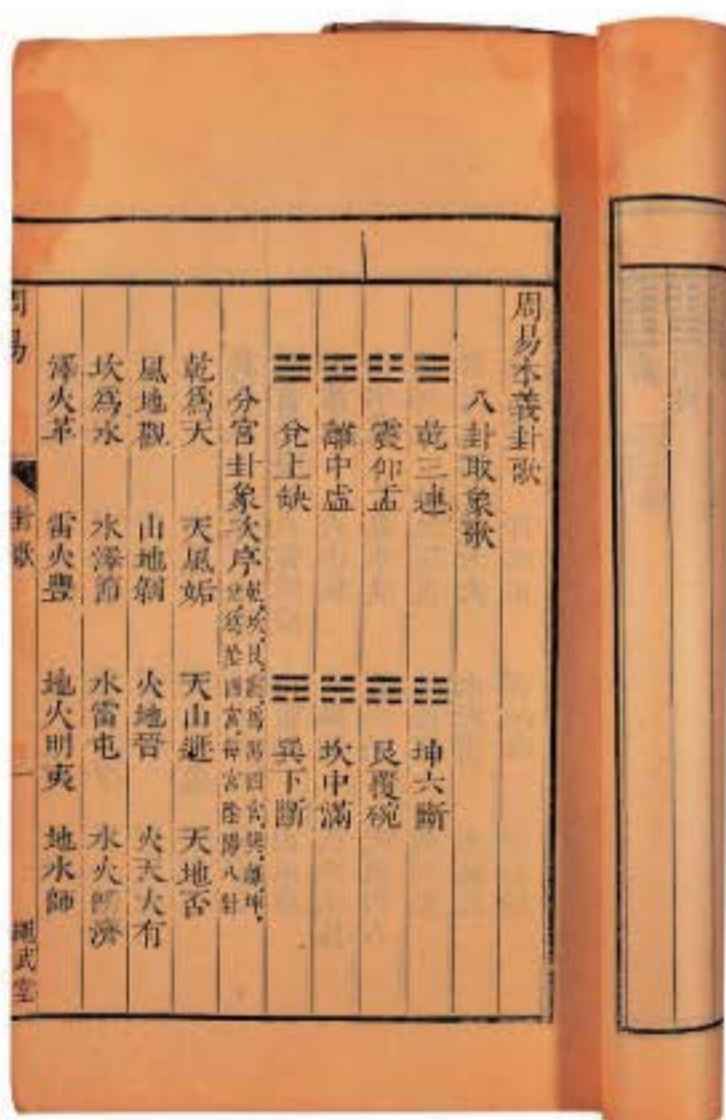 周易本義卦歌
八卦取象歌
☰ 乾三連 ☷ 坤六斷
☳ 震仰盂 ☶ 艮覆碗
☲ 離中虛 ☵ 坎中滿
☱ 兌上缺 ☴ 巽下斷
分宮卦象次序
乾坎艮震爲陽四宮巽離坤
兌爲陰四宮每宮陰陽八卦
乾爲天 天風姤 天山遯 天地否
風地觀 山地剝 火地晉 火天大有
坎爲水 水澤節 水雷屯 水火既濟
澤火革 雷火豐 地火明夷 地水師
周易 卦歌 一 繩武堂